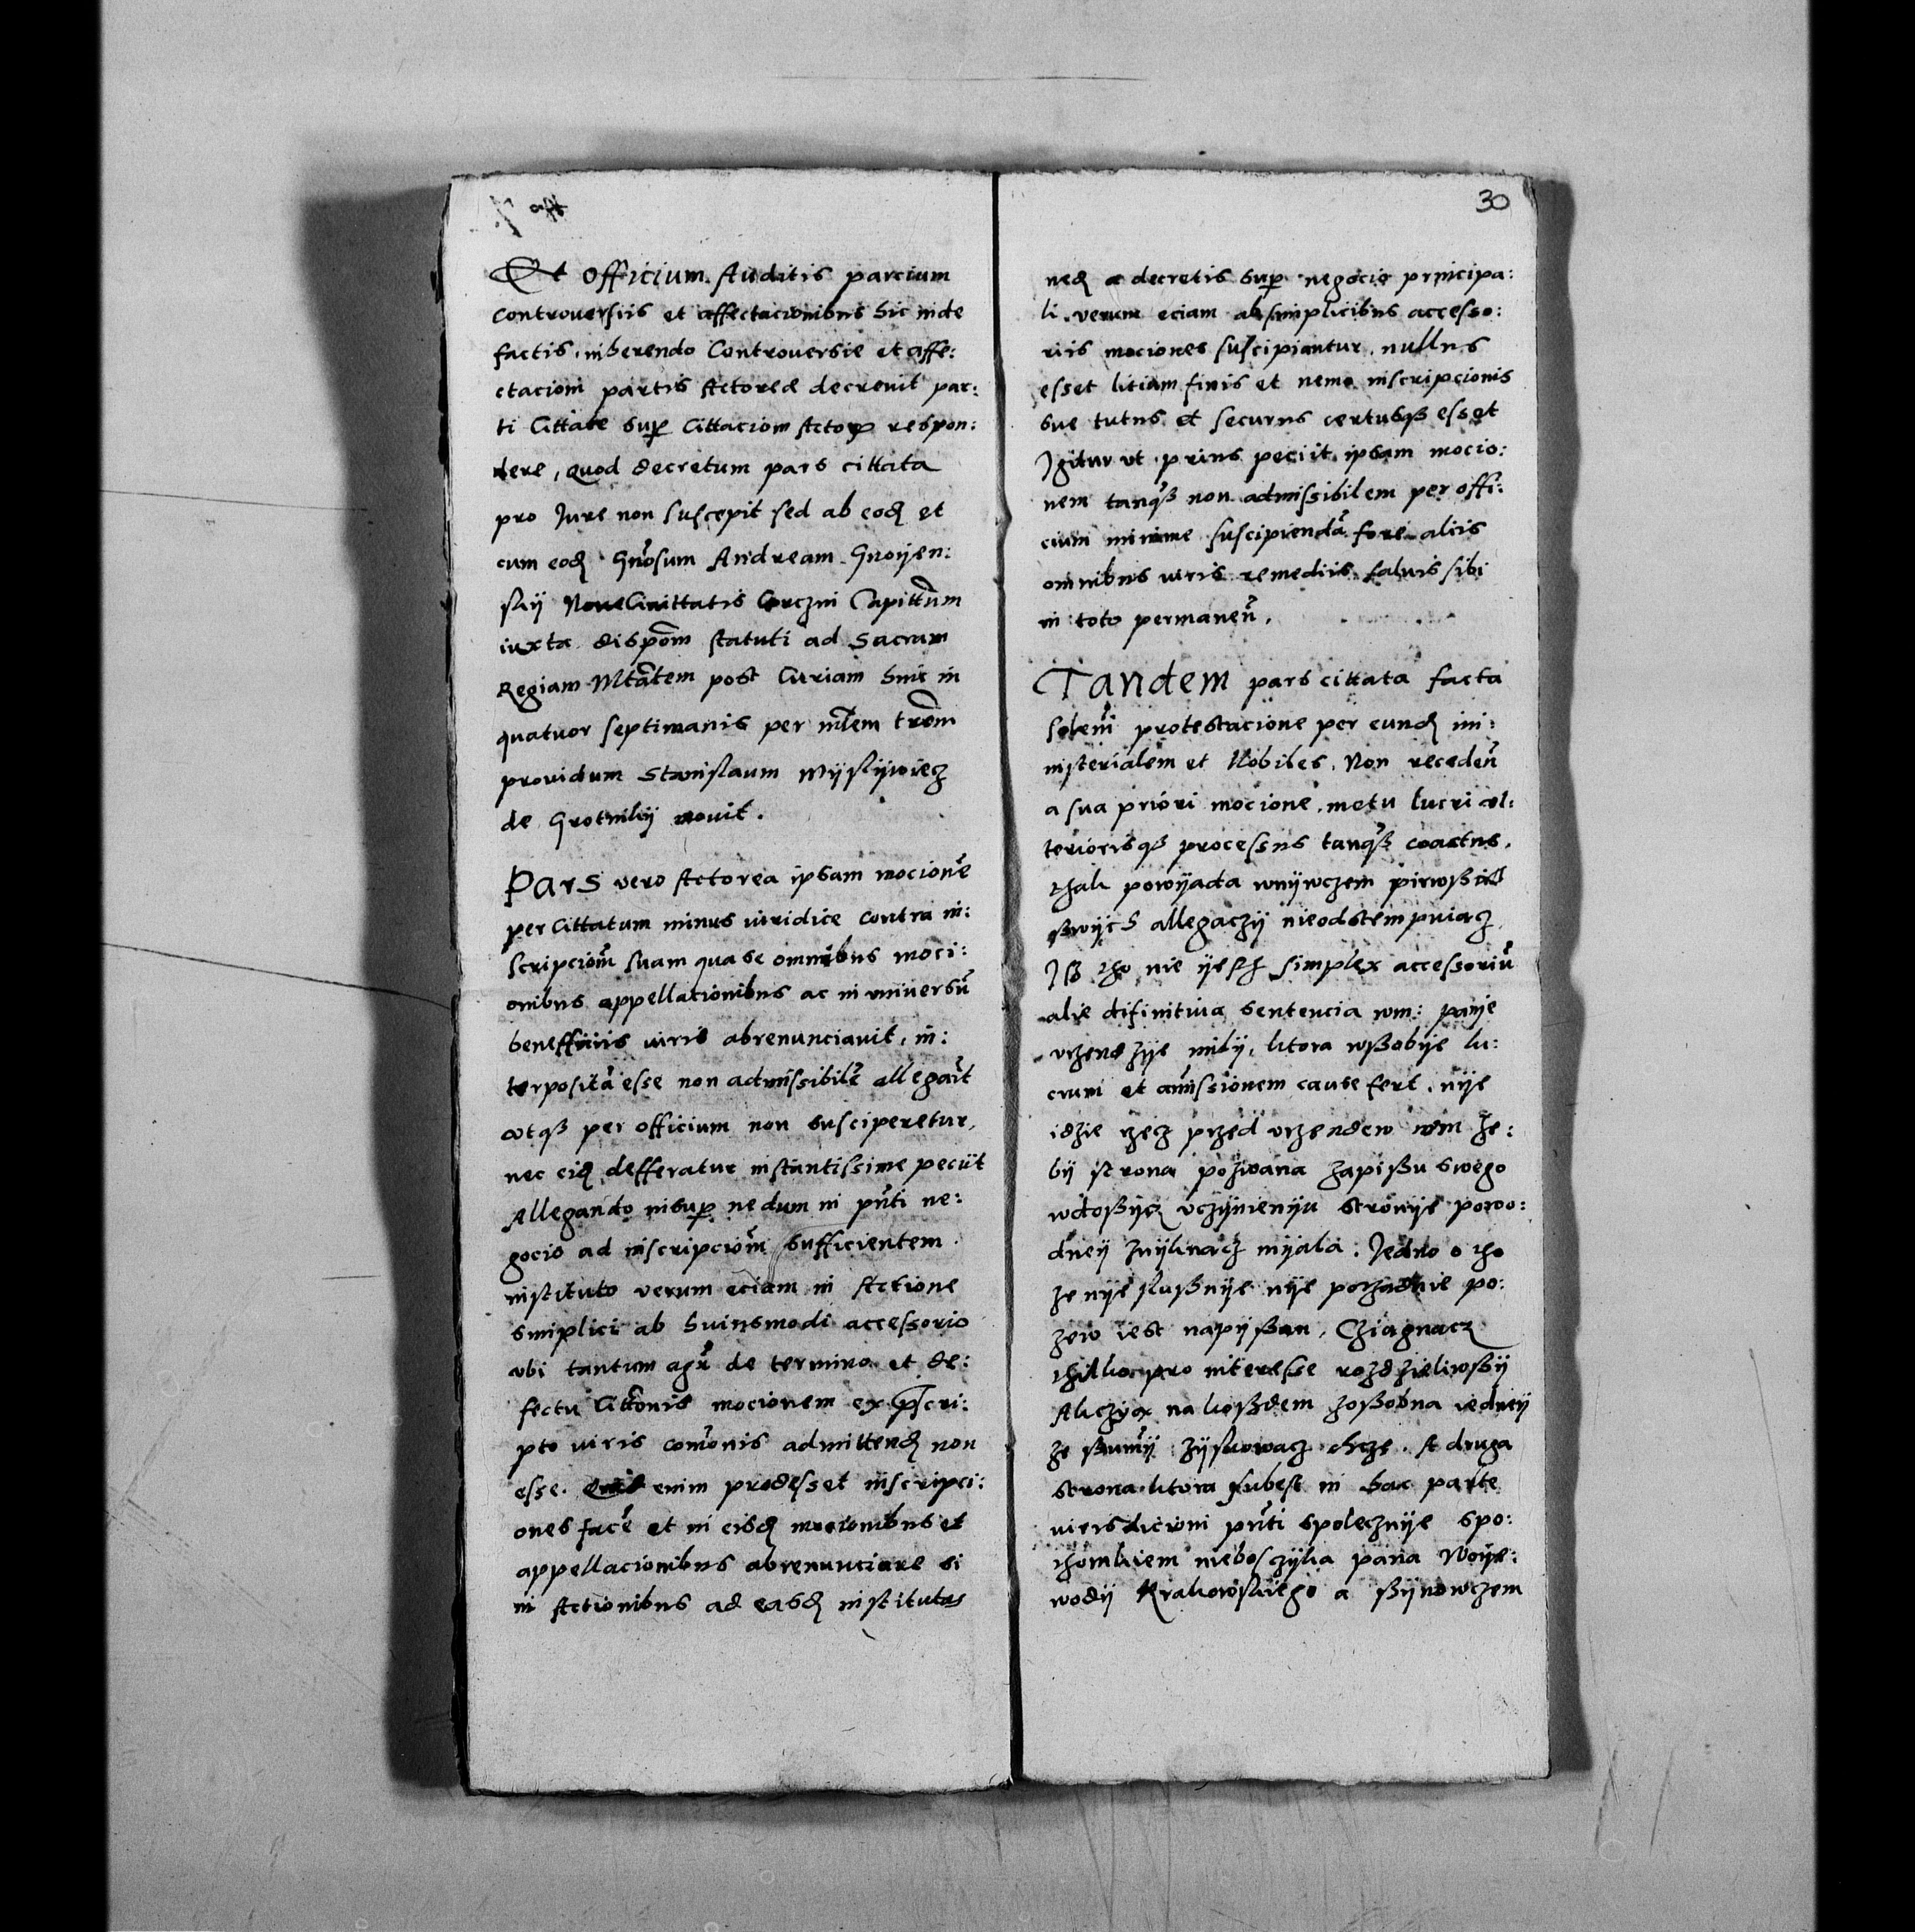 Et Officium Auditis parcium
Controuersiis et affectacionibus hic inde
factis, inherendo Controuersie et affe:
ctacioni partis Actoreæ decreuit par:
ti Cittate sup Cittaciom Actor respon:
dere, quod decretum pars cittata
pro Jure non suscepit sed ab eod et
cum eod Gnosum Andream Gnoyen:
skij Noue Ciuittatis Corczin Capittum
iuxta dispom statuti ad Sacram
Regiam Mtatem post Curiam hinc in
quatuor septimanis per mlem trem
prouidum Stanislaum Mijslijwiecz
de Grotnikij mouit.
Pars vero Actorea ipsam mocione
per Cittatum minus iuridice contra in:
scripciom suam qua se omnibus moci:
onibus appellacionibus ac in vniuersu
beneffiiis iuris abrenunciauit, in:
terposita esse non admissibile allegauit
vtqß per officium non susciperetur,
nec eid defferatur instantissime peciit
Allegando insup nedum in pnti ne:
gocio ad inscripciom sufficientem
instituto verum eciam in Actione
simplici ab huiusmodi accessorio
vbi tantum agr de termino et de:
fectu Cittonis mocionem ex pscri:
pto iuris comonis admittend non
esse. Quid enim prodesset inscripci:
ones face et in eisd mocionibus et
appellacionibus abrenunciare si
in Actionibus ad easd institutas
30
ned a decretis sup negocio principa:
li verum eciam ab simplicibus accesso:
riis mociones suscipiantur, nullus
esset litium finis et nemo inscripcionis
sue tutus et securus certusqß esset
Igitur vt prius peciit ipsam mocio:
nem tanqß non admissibilem per offi:
cium minime suscipienda fore aliis
omnibus iuris remediis saluis sibi
in toto permanen.
Tandem pars cittata facta
soleni protestacione per eund mi:
nisterialem et Nobiles, Non receden
a sua priori mocione, metu lucri vl:
teriorisqß processus tanqß coactus,
thak powijada wnijwczem pirwßich
ßwijch allegaczij nieodstempuiacz
Iß tho nie ijesth simplex accessoriu
alie difinitiua sentencia wm: panije
vrzendzije milij, ktora wßobije lu:
crum et amissionem cause fert, nije
idzie rzecz przed vrzendem wm ze:
bij strona pozwana zapißu swego
wdoßijcz vczijnieniju stronije powo:
dneij znijknacz mijala. Jedno o tho
ze nije slußnije nije porzadnie po:
zew iest napijßan, Cziagnacz
thilko pro interesse rozdzieliwßij
Akczya na koßdem zoßobna iedneij
ze ßummij zijskowacz chcze. A druga
strona ktora subest in hac parte
iurisdicioni pnti spolecznije spo:
thomkiem nieboszczijka pana Woije:
wodij Krakowskiego a ßijnowczem